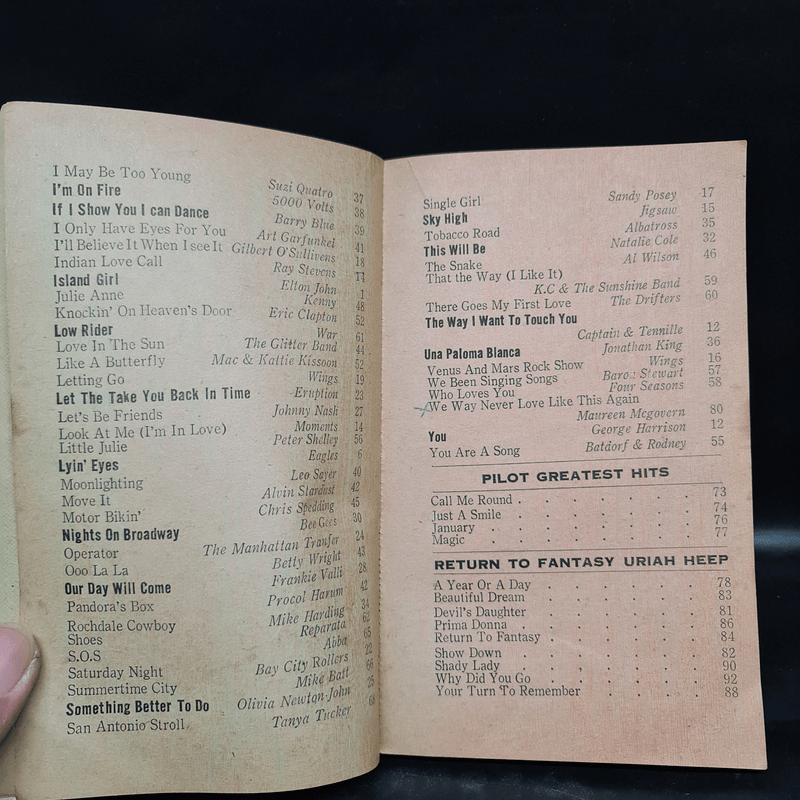 I May Be Too Young Suzi Quatro 37
I'm On Fire 5000 Volts 38
If I Show You I can Dance Barry Blue 39
I Only Have Eyes For You Art Garfunkel 41
I'll Believe It When I see It Gilbert O'Sullivens 18
Indian Love Call Ray Stevens
Island Girl Elton John 1
Julie Anne Kenny 48
Knockin' On Heaven's Door Eric Clapton 52
Low Rider War 61
Love In The Sun The Glitter Band 44
Like A Butterfly Mac & Kattie Kissoon 52
Letting Go Wings 19
Let The Take You Back In Time Eruption 23
Let's Be Friends Johnny Nash 27
Look At Me (I'm In Love) Moments 14
Little Julie Peter Shelley 56
Lyin' Eyes Eagles 6
Moonlighting Leo Sayer 40
Move It Alvin Stardust 42
Motor Bikin' Chris Spedding 45
Nights On Broadway Bee Gees 30
Operator The Manhattan Tranfer 24
Ooo La La Betty Wright 43
Our Day Will Come Frankie Valli 28
Pandora's Box Procol Harum 42
Rochdale Cowboy Mike Harding 34
Shoes Reparata 62
S.O.S Abba 65
Saturday Night Bay City Rollers 22
Summertime City Mike Batt 66
Something Better To Do Olivia Newton-John 25
San Antonio Stroll Tanya Tucker 68
Single Girl Sandy Posey 17
Sky High Jigsaw 15
Tobacco Road Albatross 35
This Will Be Natalie Cole 32
The Snake Al Wilson 46
That the Way (I Like It)
K.C & The Sunshine Band 59
There Goes My First Love The Drifters 60
The Way I Want To Touch You
Captain & Tennille 12
Una Paloma Blanca Jonathan King 36
Venus And Mars Rock Show Wings 16
We Been Singing Songs Baron Stewart 57
Who Loves You Four Seasons 58
We Way Never Love Like This Again
Maureen Mcgovern 80
You George Harrison 12
You Are A Song Batdorf & Rodney 55
PILOT GREATEST HITS
Call Me Round . . . . . . . 73
Just A Smile . . . . . . . 74
January . . . . . . . 76
Magic . . . . . . . 77
RETURN TO FANTASY URIAH HEEP
A Year Or A Day . . . . . . 78
Beautiful Dream . . . . . . 83
Devil's Daughter . . . . . . 81
Prima Donna . . . . . . 86
Return To Fantasy . . . . . . 84
Show Down . . . . . . 82
Shady Lady . . . . . . 90
Why Did You Go . . . . . . 92
Your Turn To Remember . . . . 88